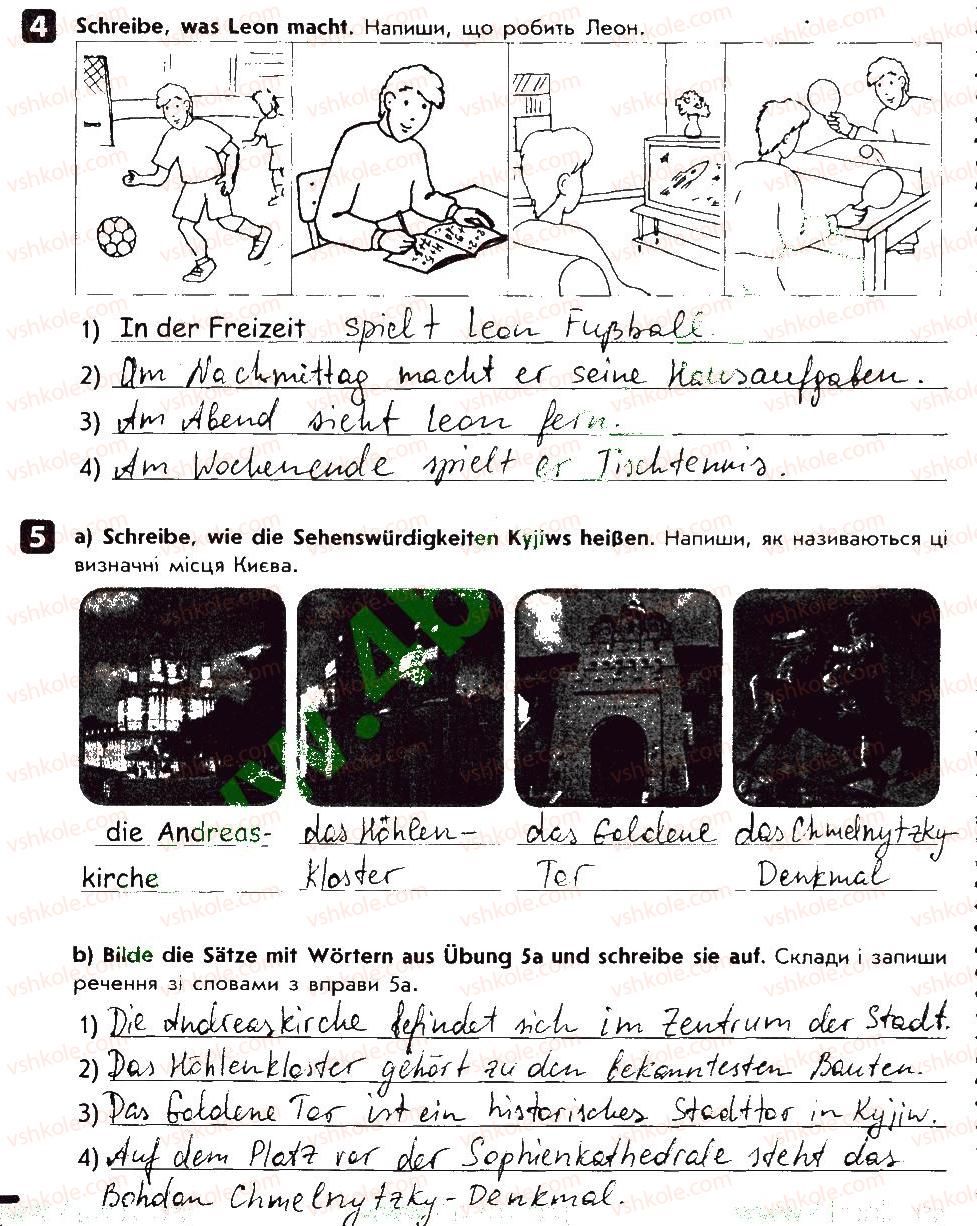 4 Schreibe, was Leon macht. Напиши, що робить Леон.
1) In der Freizeit spielt Leon Fußball.
2) Am Nachmittag macht er seine Hausaufgaben.
3) Am Abend sieht Leon fern.
4) Am Wochenende spielt er Tischtennis.
5 a) Schreibe, wie die Sehenswürdigkeiten Kyjiws heißen. Напиши, як називаються ці
визначні місця Києва.
die Andreas- das Höhlen- das Goldene das Chmelnytzky-
kirche Kloster Tor Denkmal
b) Bilde die Sätze mit Wörtern aus Übung 5a und schreibe sie auf. Склади і запиши
речення зі словами з вправи 5а.
1) Die Andreaskirche befindet sich im Zentrum der Stadt.
2) Das Höhlenkloster gehört zu den bekanntesten Bauten.
3) Das Goldene Tor ist ein historisches Stadttor in Kyjiw.
4) Auf dem Platz vor der Sophienkathedrale steht das
Bohdan Chmelnytzky-Denkmal.
vshkole.com